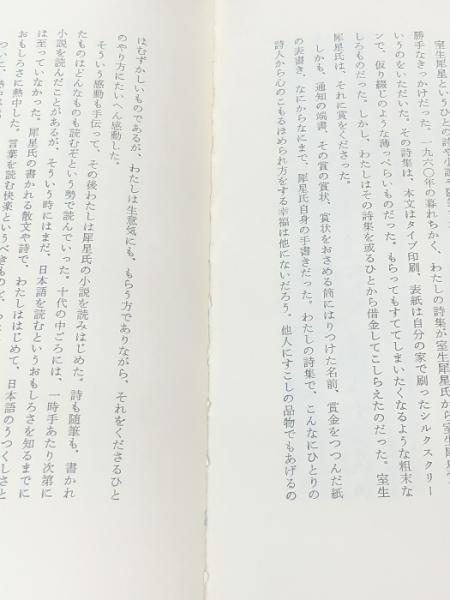 室生犀星というひとの詩や小説や随筆
勝手なきっかけだった。一九六〇年の暮れちかく、わたしの詩集が室生犀星氏から室生犀星
いうのをいただいた。その詩集は、本文はタイプ印刷、表紙は自分の家で刷ったシルクスクリー
ンで、仮り綴じのような薄っぺらいものだった。もらってもすててしまいたくなるような粗末な
しろものだった。しかし、わたしはその詩集を或るひとから借金してこしらえたのだった。室生
犀星氏は、それに賞をくださった。
しかも、通知の端書、その賞の賞状、賞状をおさめる筒にはりつけた名前、賞金をつつんだ紙
の表書き、なにからなにまで、犀星氏自身の手書きだった。わたしの詩集で、こんなにひとりの
詩人から心のこもるほめられ方をする幸福は他にないだろう。他人にすこしの品物でもあげるの
はむずかしいものであるが、わたしは生意気にも、もらう方でありながら、それをくださるひと
のやり方にたいへん感動した。
そういう感動も手伝って、その後わたしは犀星氏の小説を読みはじめた。詩も随筆も、書かれ
たものはどんなものも読むぞという勢で読んでいった。十代の中ごろには、一時手あたり次第に
小説を読んだことがあるが、そういう時にはまだ、日本語を読むというおもしろさを知るまでに
は至っていなかった。犀星氏の書かれる散文や詩で、わたしははじめて、日本語のうつくしさと
おもしろさに熱中した。言葉を読む快楽というべきもの